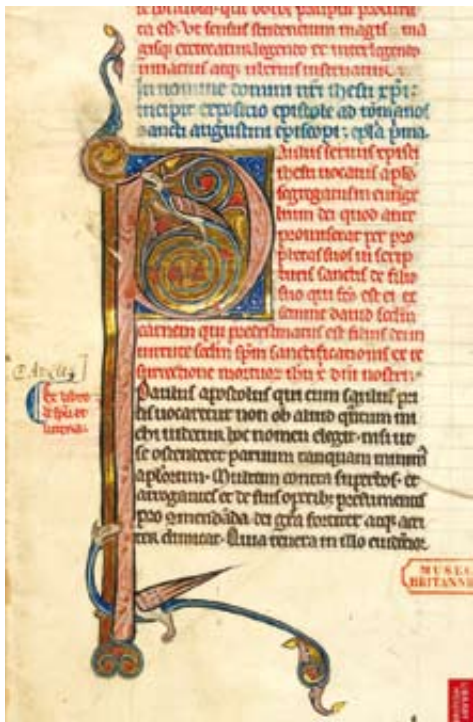 ca est. Ut sensus sentencium magis ma
gisq; exercitatur legendo et intelligendo
In nomine domini nr̄i ihesu xp̄i
incipit expositio epistole ad romanos
sancti augustini episcopi
aulus seruus xp̄isti
ihesu uocatus apl̄s
segregatus in euuange
lium dei quod ante
promiserat per pro
phetas suos in scrip
turis sanctis de filio
suo qui fc̄s est ei ex
semine dauid sc̄dm
carnem qui predestinatus est filius dei in
uirtute sc̄dm sp̄m sanctificationis ex re
surrectione mortuor ihu x̄ dn̄i nostri.
ex libro
Paulus apostolus qui cum saulus pri
us uocaretur non ob aliud quantum mi
chi uidetur hoc nomen elegit. nisi ut
se ostenderet paruum tanquam minimū
apl̄orum. Multum contra superbos et
arrogantes et de suis operib; presumentes
pro gmendāda dei gr̄a fortiter atq; acri
ter dimicat. Quia reuera in illo euidētior
MUSEUM
BRITANNICUM